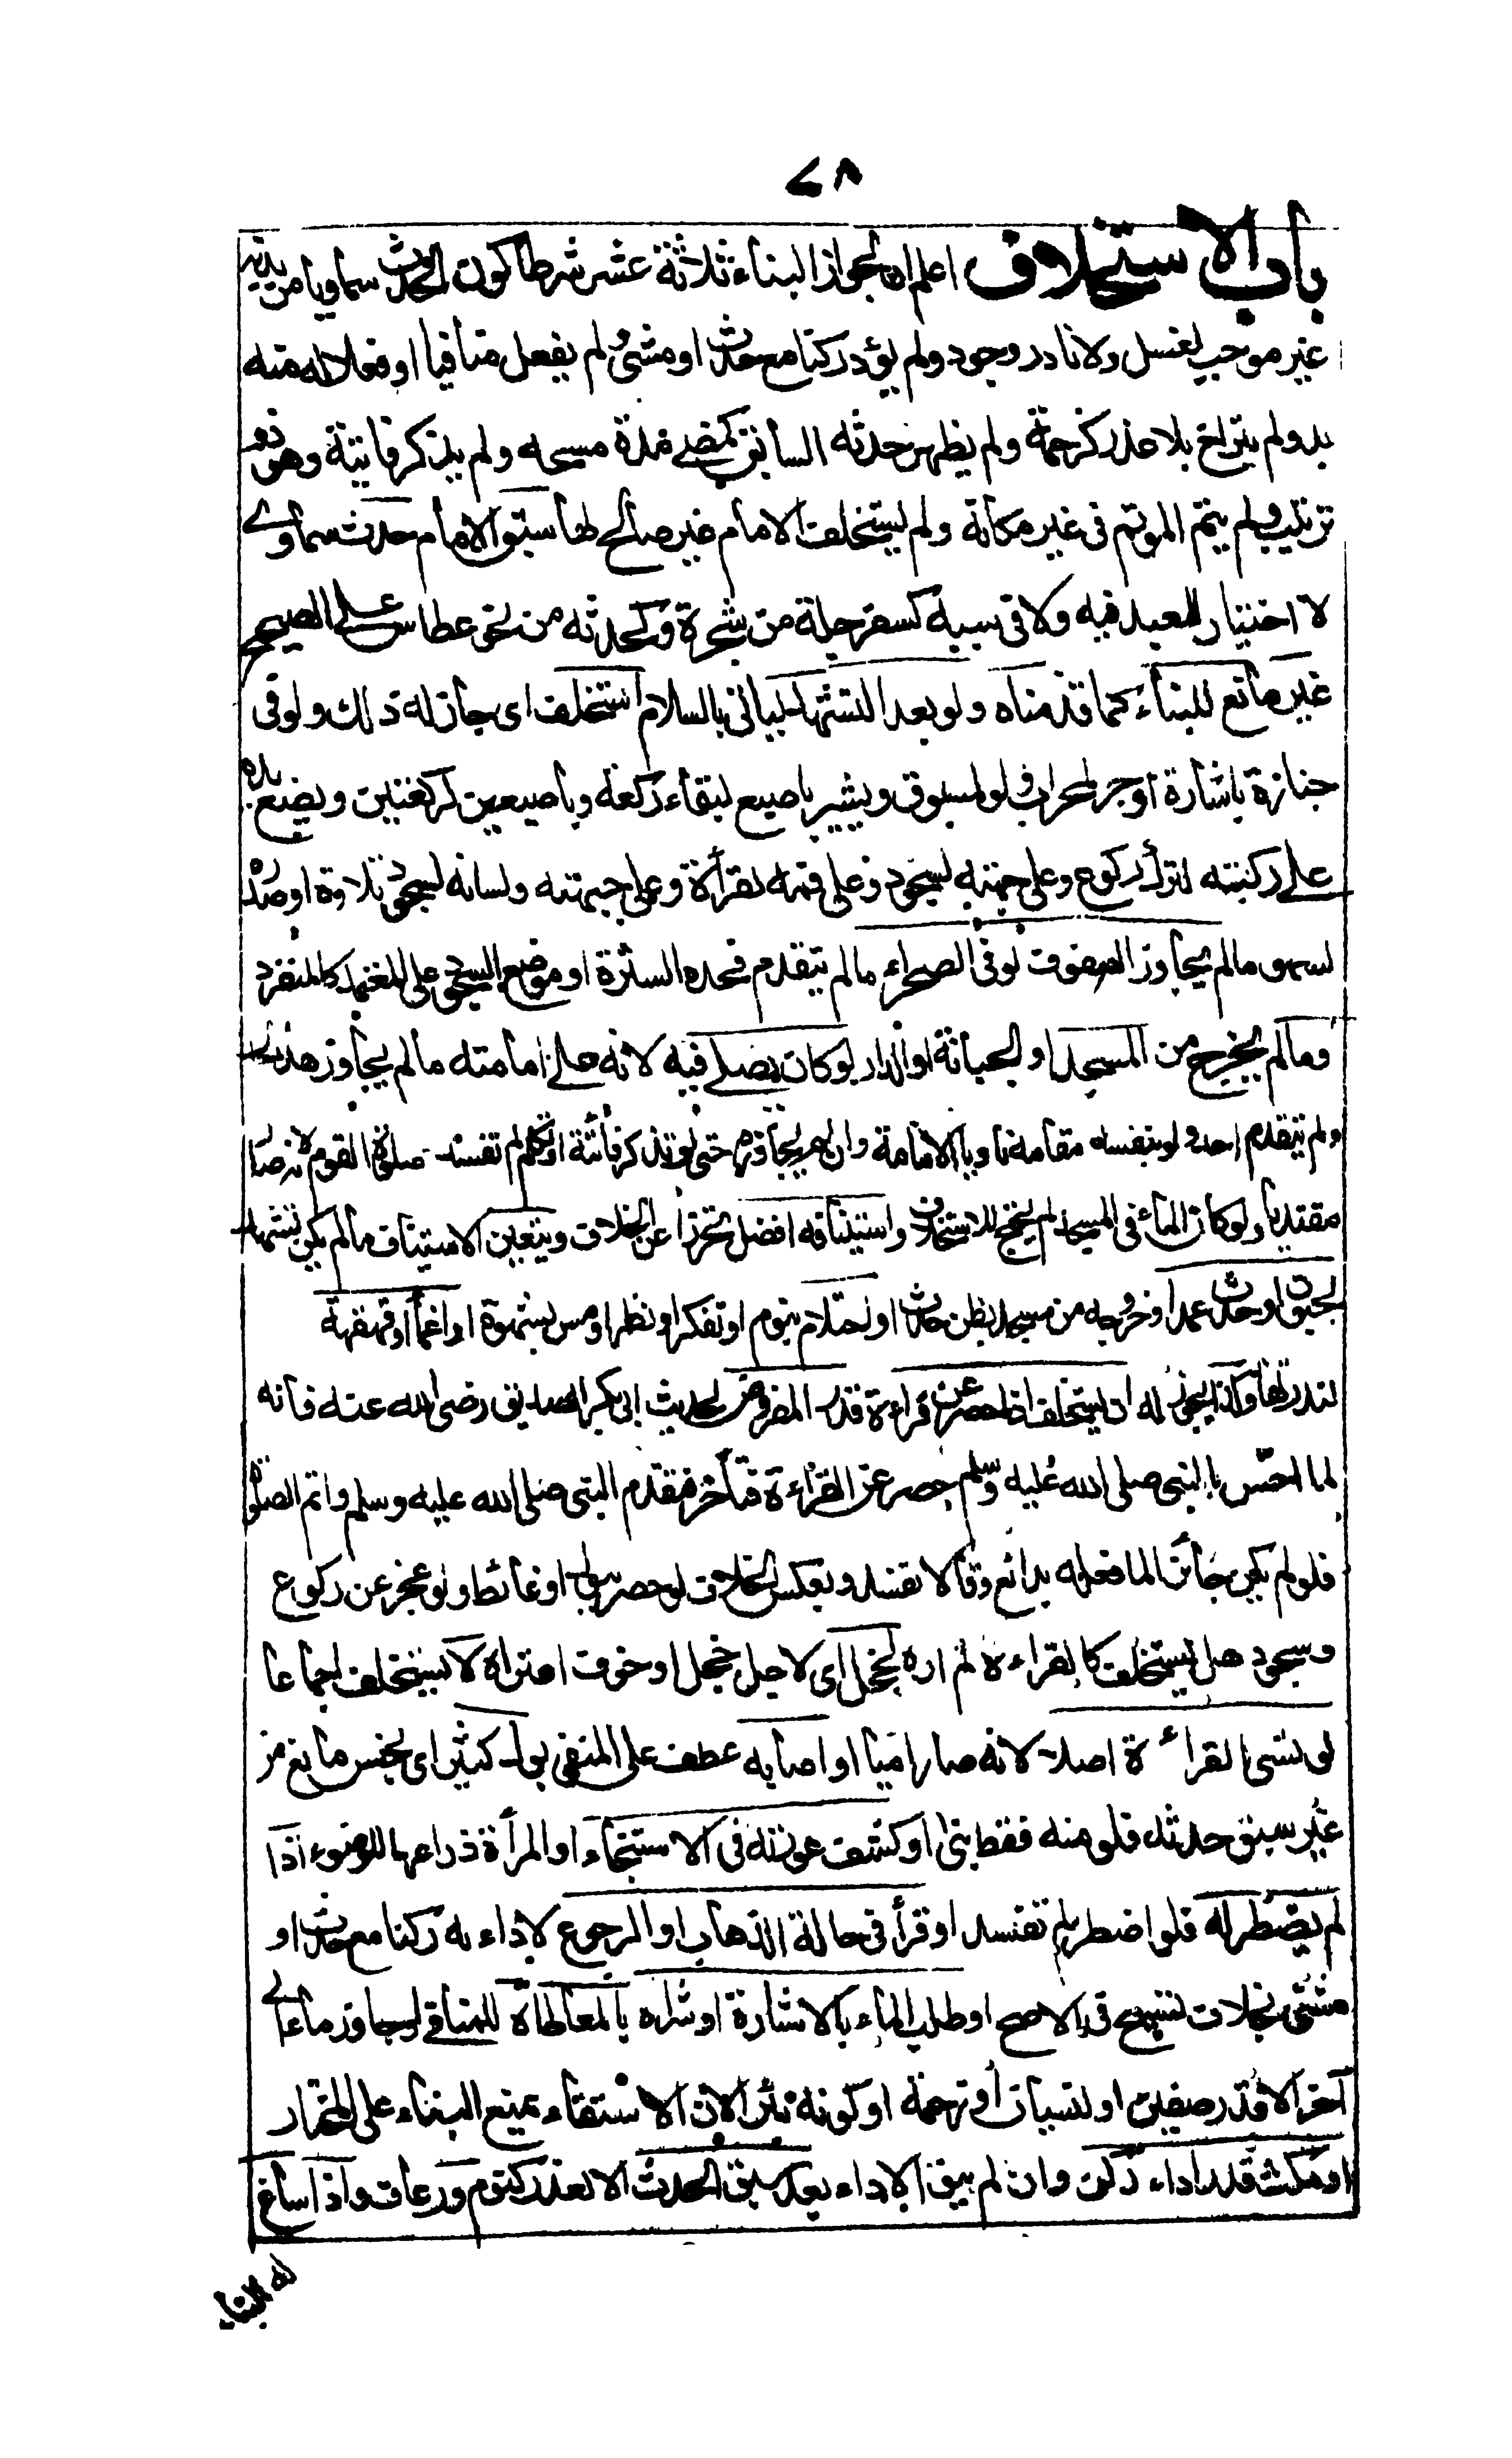 ٧٨
باب الاستخلاف اعلم ان لجواز البناء ثلاثة عشر شرطا كون الحدث سماويا من بدنه
غير موجب لغسل ولا نادر وجود ولم يؤد ركنا مع حدث او مشى ولم يفعل منافيا او فعلا له منه
بد ولم يتراخ بلا عذر كزحمة ولم يظهر حدثه السابق كمضى مدة مسحه ولم يتذكر فائتة وهو ذو
ترتيب ولم يتم المؤتم فى غير مكانه ولم يستخلف الامام غير صالح لها سبق الامام حدث سماوى
لا اختيار للعبد فيه ولا فى سببه كسفرجلة من شجرة وكحدثه من نحو عطاس على الصحيح
غير مانع للبناء كما قدمناه ولو بعد التشهد لياتى بالسلام استخلف اى جاز له ذلك ولو فى
جنازة باشارة او جر لمحراب ولو لمسبوق ويشير باصبع لبقاء ركعة وباصبعين لركعتين ويضع يده
على ركبته لترك ركوع وعلى جبهته لسجود وعلى فمه لقرأة وعلى جبهته ولسانه لسجود تلاوة او صدره
لسهو مالم يجاوز الصفوف لو فى الصحراء مالم يتقدم فحده السترة او موضع السجود على المعتمد كالمنفرد
ومالم يخرج من المسجد او الجبانة او الدار لو كان يصلى فيه لانه على امامته مالم يجاوز هذا الحد
ولم يتقدم احد ولو بنفسه مقامه ناويا الامامة وان لم يجاوزه حتى لو تذكر فائتة او تكلم لم تفسد صلوة القوم لانه صار
مقتديا ولو كان الماء فى المسجد لم يحتج للاستخلاف واستينافه افضل تحرزا عن الخلاف ويتعين الاستيناف مالم يكن تشهد
لجنون او حدث عمدا او خروجه من مسجد بظن حدث او احتلام بنوم او تفكر او نظر او مس بشهوة او اغماء او قهقهة
لندرتها وكذا يجوز له ان يستخلف اذا حصر عن قراءة قدر المفروض لحديث ابى بكر الصديق رضى الله عنه فانه
لما احسّ بالنبى صلى الله عليه وسلم حصر عن القراءة فتأخر فتقدم النبى صلى الله عليه وسلم واتم الصلوة
فلو لم يكن جائزا لما فعله بدائع وقالا تفسد وبعكس الخلاف لو حصر ببول او غائط ولو عجز عن ركوع
وسجود هل يستخلف كالقراءة لم اره لخجل اى لاجل خجل او خوف اعتراه لا يستخلف اجماعا
لو نسى القراءة اصلا لانه صار اميا او اصابه عطف على المنفى بول كثير اى نجس مانع من
غير سبق حدثه فلو منه فقط بنى او كشف عورته فى الاستنجاء او المرأة ذراعها للوضوء اذا
لم يضطر له فلو اضطر لم تفسد او قرأ فى حالة الذهاب او الرجوع لاداءه ركنا مع حدث او
مشى بخلاف تسبيح فى الاصح او طلب الماء بالاشارة او شراه بالمعاطاة للمنافى او جاوز ماء الى
آخر الا قدر صفين او لنسيان او زحمة او كونه بئرا لان الاستقاء يمنع البناء على المختار
او مكث قدر اداء ركن وان لم ينو الاداء بعد سبق الحدث الا لعذر كنوم ورعاف واذا ساغ
له البناء